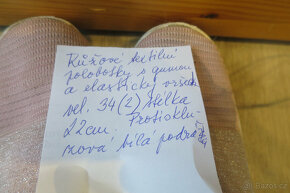 Růžové textilní
polobotky s gumou
a elastický vršek
vel. 34 (2) stélka
22cm. Protisklu-
zová bílá podrážka